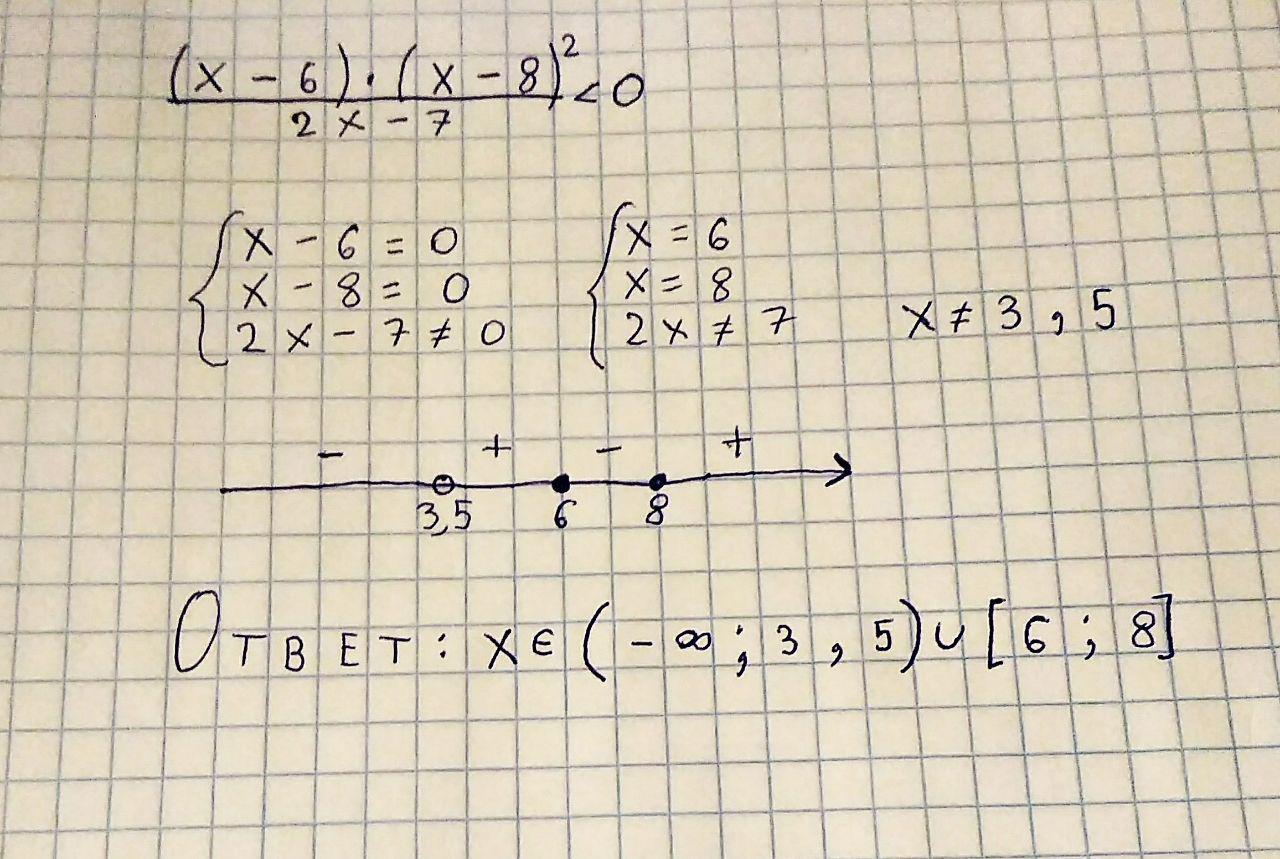 (x - 6) · (x - 8)² < 0
2x - 7
x - 6 = 0
x - 8 = 0
2x - 7 ≠ 0
x = 6
x = 8
2x ≠ 7
x ≠ 3,5
- + - +
3,5 6 8
Ответ: x ∈ (-∞; 3,5) ∪ [6; 8]